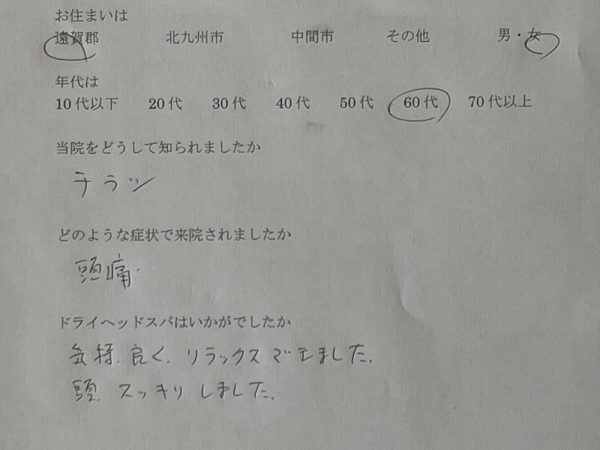 お住まいは
遠賀郡 北九州市 中間市 その他 男・女
年代は
10代以下 20代 30代 40代 50代 60代 70代以上
当院をどうして知られましたか
チラシ
どのような症状で来院されましたか
頭痛.
ドライヘッドスパはいかがでしたか
気持.良く.リラックスできました.
頭.スッキリしました.